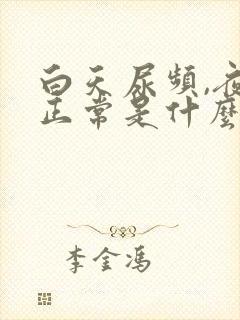 白天尿频,夜
正常是什麼
李金冯